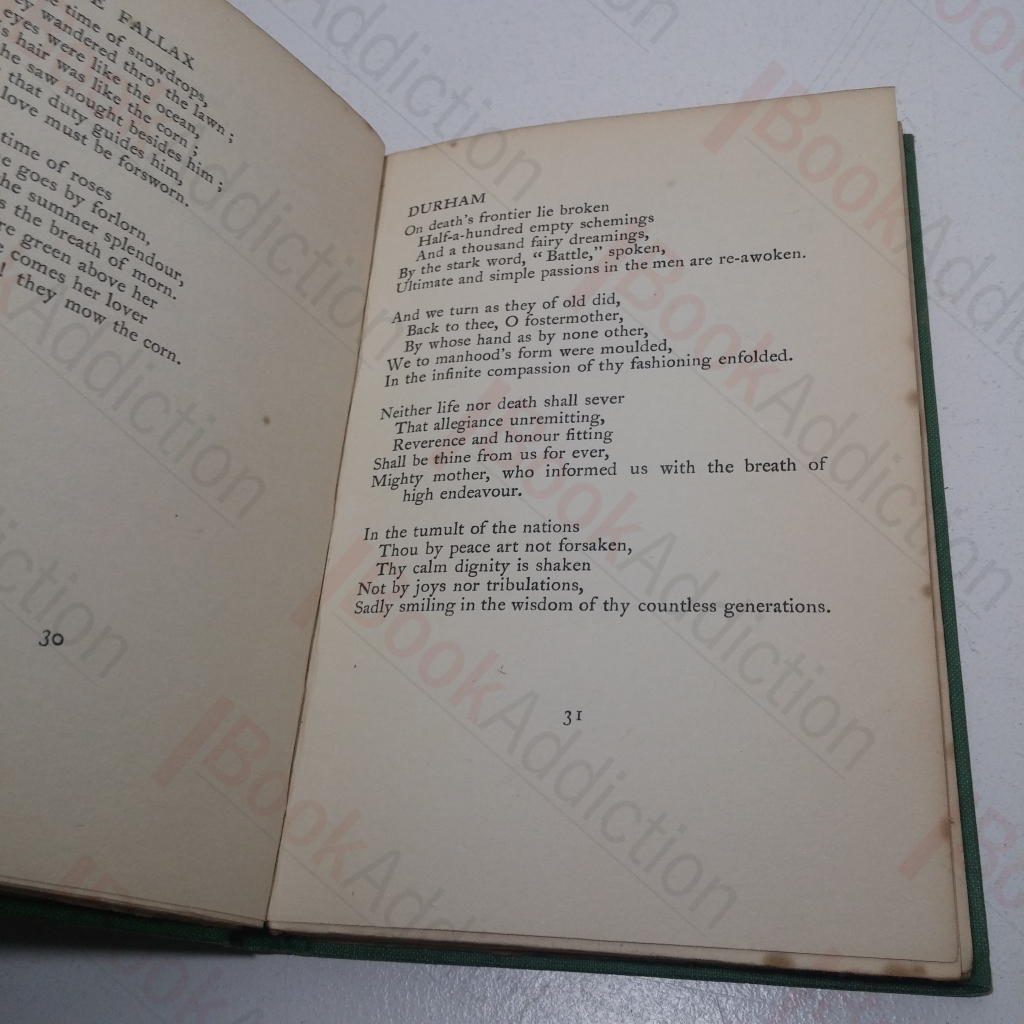 FALLAX
time of snowdrops,
wandered thro' the lawn;
eyes were like the ocean,
hair was like the corn;
saw nought besides him;
that duty guides him,
love must be forsworn.
time of roses
goes by forlorn,
summer splendour,
the breath of morn.
green above her
comes her lover
! they mow the corn.
30
DURHAM
On death's frontier lie broken
Half-a-hundred empty schemings
And a thousand fairy dreamings,
By the stark word, "Battle," spoken,
Ultimate and simple passions in the men are re-awoken.
And we turn as they of old did,
Back to thee, O fostermother,
By whose hand as by none other,
We to manhood's form were moulded,
In the infinite compassion of thy fashioning enfolded.
Neither life nor death shall sever
That allegiance unremitting,
Reverence and honour fitting
Shall be thine from us for ever,
Mighty mother, who informed us with the breath of
high endeavour.
In the tumult of the nations
Thou by peace art not forsaken,
Thy calm dignity is shaken
Not by joys nor tribulations,
Sadly smiling in the wisdom of thy countless generations.
31
BookAddiction